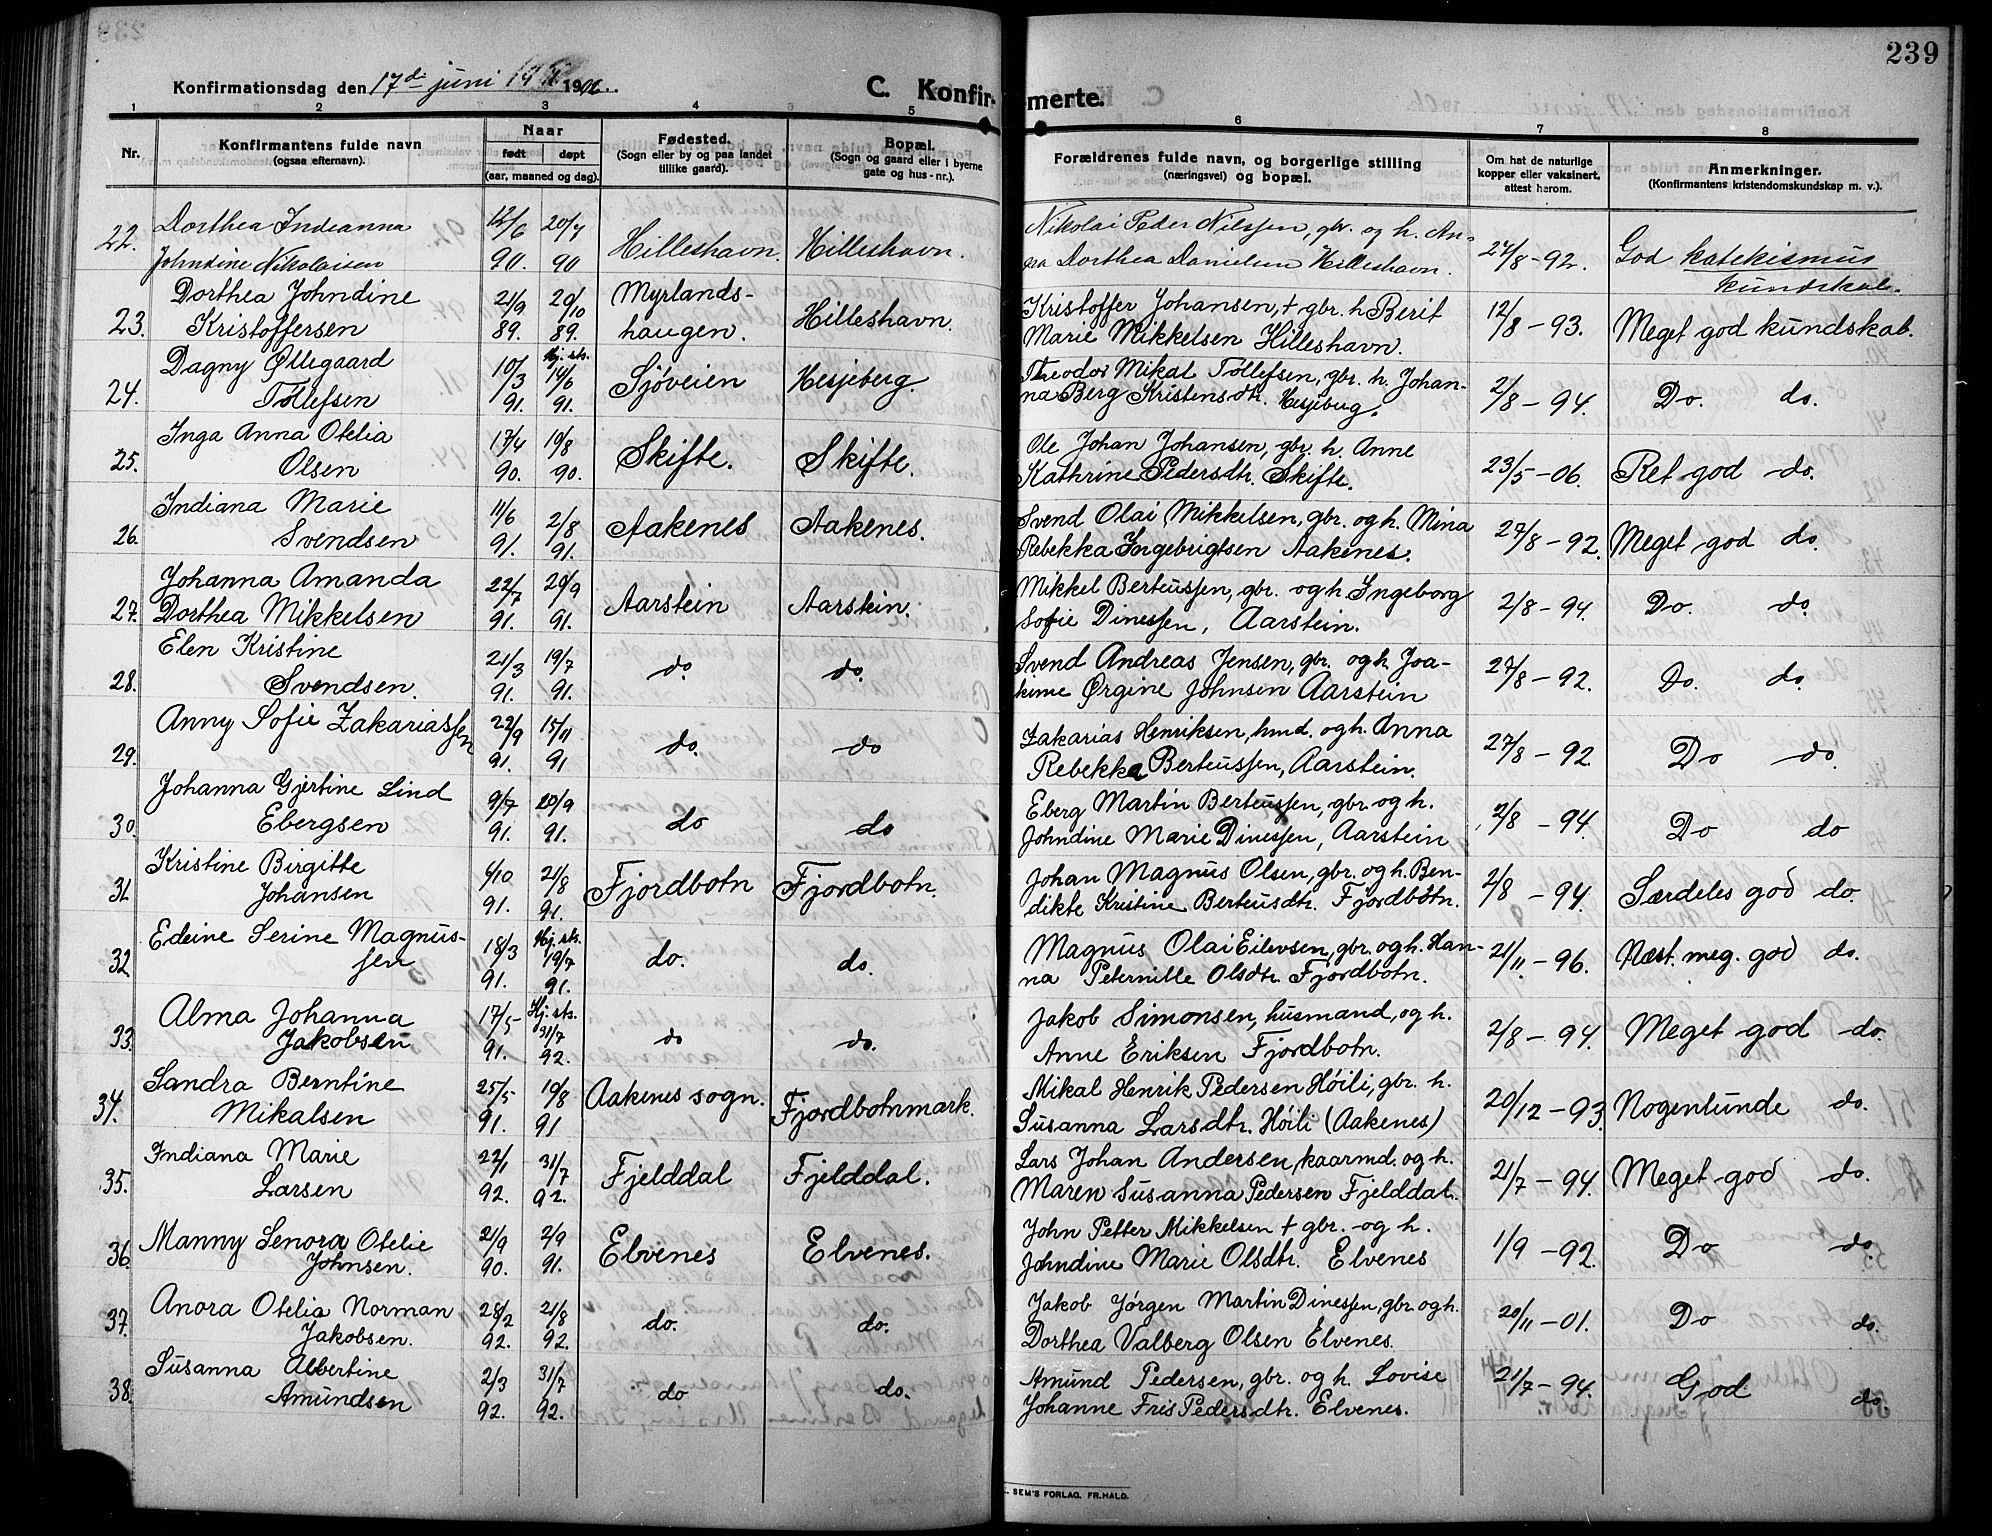 239
Konfirmationsdag den 17de juni 1906.
C. Konfirmerte.
1 2 3 4 5 6 7 8
Nr.
Konfirmantens fulde navn
(ogsaa efternavn).
Naar
født døpt
(aar, maaned og dag).
Fødested.
(Sogn eller by og paa landet
tillike gaard).
Bopæl.
(Sogn og gaard eller i byerne
gate og hus-nr.).
Forældrenes fulde navn, og borgerlige stilling
(næringsvei) og bopæl.
Om hat de naturlige
kopper eller vaksinert,
attest herom.
Anmerkninger.
(Konfirmantens kristendomskundskap m. v.).
Dorthea Indianna 12/6 20/7 Nikolai Peder Nilssen, gbr. og h. An-
22. Johndine Nikolaisen 90. 90 Hilleshavn. Hilleshavn. na Dorthea Danielsen Hilleshavn. 27/8-92. God katekismus
kundskab.
Dorthea Johndine 21/9 20/10 Myrlands- Kristoffer Johansen, + gbr. h Berit
23. Kristoffersen 89. 89. haugen. Hilleshavn. Marie Mikkelsen Hilleshavn. 12/8-93. Meget god kundskab.
Dagny Øllegaard 10/3 Hj. sk. 14/6 Theodor Mikal Tollefsen, gbr. h. Johan-
24. Tollefsen 91. 91. Sjøveien Hesjeberg. na Berg Kristensdtr. Hesjeberg. 2/8-94. Do. do.
Inga Anna Otelia 17/4 19/8 Ole Johan Johansen, gbr. h. Anne
25. Olsen 90. 90. Skifte. Skifte. Kathrine Pedersdtr. Skifte. 23/5-06. Ret god do.
Indiana Marie 11/6 2/8 Svend Olai Mikkelsen, gbr. og h. Mina
26. Svendsen 91. 91. Aakenes Aakenes. Rebekka Ingebrigtsen Aakenes. 27/8-92. Meget god do.
Johanna Amanda 22/7 20/9 Mikkel Berteussen, gbr. og h Ingeborg
27. Dorthea Mikkelsen 91. 91. Aarstein Aarstein. Sofie Dinessen, Aarstein. 2/8-94. Do. do.
Elen Kristine 21/3 19/7 Svend Andreas Jensen, gbr. og h. Joa-
28. Svendsen. 91. 91. do. do. kime Ørgine Johnsen Aarstein 27/8-92. Do. do.
Anny Sofie Zakariassen 22/9 15/11 Zakarias Henriksen, hmd. og h. Anna
29. 91. 91 do. do Rebekka Berteussen, Aarstein. 27/8-92. Do do.
Johanna Gjertine Lind 9/7 20/9 Eberg Martin Berteussen, gbr. og h.
30. Ebergsen 91. 91. do do Johndine Marie Dinessen, Aarstein 2/8-94. Do do
Kristine Birgitte 4/10 21/8 Johan Magnus Olsen, gbr. og h. Ben-
31. Johansen 91. 91. Fjordbotn Fjordbotn. dikte Kristine Berteusdtr. Fjordbotn. 2/8-94. Særdeles god do.
Edeine Serine Magnus- 18/3 Hj. sk. 19/7 Magnus Olai Eilevsen, gbr. og h. Han-
32. sen 91. 91. do. do. na Peternille Olsdtr. Fjordbotn. 21/11-96. Næst. meg. god do.
Alma Johanna 17/5 Hj. sk. 31/7 Jakob Simonsen, husmand, og h.
33. Jakobsen 91. 92. do do. Anne Eriksen Fjordbotn. 2/8-94. Meget god do.
Sandra Berntine 25/5 19/8 Mikal Henrik Pedersen Høili, gbr. h.
34. Mikalsen 91. 91 Aakenes sogn. Fjordbotnmark. Susanna Larsdtr. Høili (Aakenes) 20/12-93. Nogenlunde do.
Indiana Marie 22/1 31/7 Lars Johan Andersen, kaarmd. og h.
35. Larsen 92. 92. Fjelddal Fjelddal. Maren Susanna Pedersen Fjelddal. 21/7-94. Meget god do.
Manny Senora Otelie 21/9 2/9 John Petter Mikkelsen + gbr. og h.
36. Johnsen. 90. 91. Elvenes Elvenes. Johndine Marie Olsdtr. Elvenes 1/9-92. Do do.
Anora Otelia Norman 28/2 21/8 Jakob Jørgen Martin Dinessen, gbr. og h.
37. Jakobsen. 92. 92. do. do. Dorthea Valberg Olsen Elvenes. 20/11-01. Do do.
Susanna Albertine 2/3 31/7 Amund Pedersen, gbr. og h. Lovise
38. Amundsen 92. 92. do do. Johanne Friis Pedersdtr. Elvenes. 21/7-94. God do
SEM'S FORLAG. FR.HALD.